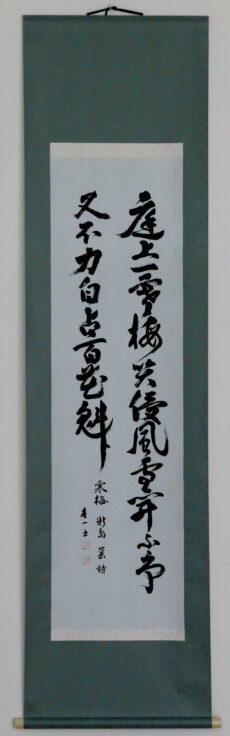 庭上一寒梅笑侵風雪開不争
又不力自占百花魁
寒梅 新島 襄 詩